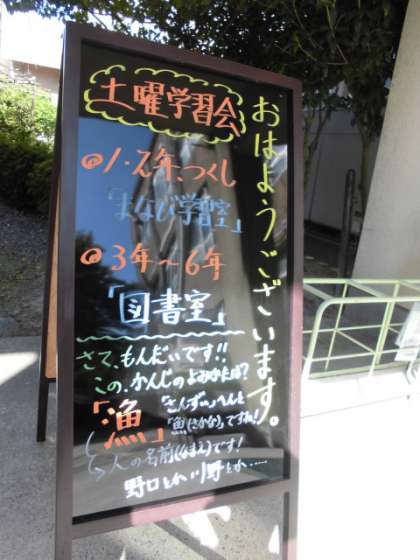 おはようございます。
土曜学習会
1・2年、つくし
「まなび学習室」
3年〜6年
「図書室」
さて、もんだいです!!
この、かんじのよみかたは?
「漁」
「さんずい」へんと
「魚(さかな)」ですね!
人の名前(なまえ)です!
野口とか川野とか……